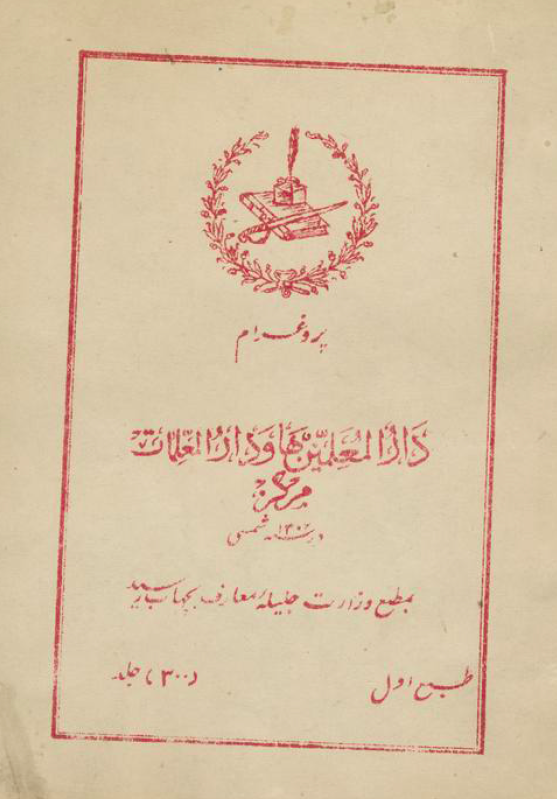 پروغرام
دَارُالمُعِلّمِیْن هَا وَدَارُالمُعَلِّمَات
مرکز
در سنه ۱۳۰۲ شمسی
بمطبع وزارت جلیلهٔ معارف بچهاپ رسید
طبع اول
(۳۰۰) جلد